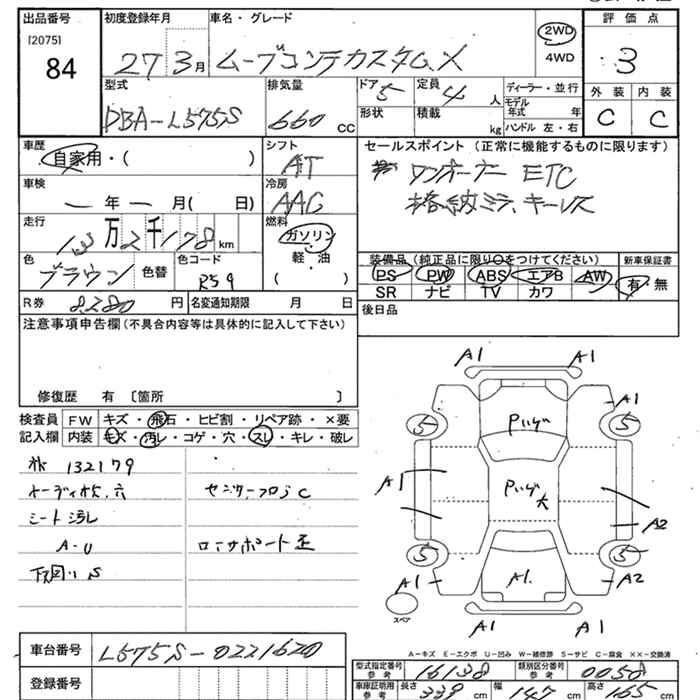 出品番号 初度登録年月 車名・グレード 評価点
[2075]
84 27 3月 ムーブコンテカスタムX 2WD 4WD 3
型式 排気量 ドア 5 定員 4人 ディーラー・並行 外装 内装
DBA-L575S 660 CC 形状 積載 kg モデル年式 年 ハンドル 左・右 C C
車歴 シフト セールスポイント (正常に機能するものに限ります)
自家用・( ) AT ワンオーナー ETC
車検 冷房 格納ミラ、キーレス
― 年 ― 月( 日) AAC
走行 燃料
13万2千178km ガソリン
軽・油
( )
色 色替 色コード 装備品 (純正品に限り○をつけてください) 新車保証書
ブラウン R59 PS PW ABS エアB AW 有・無
SR ナビ TV カワ
R券 8,280円 名変通知期限 月 日 後日品
注意事項申告欄 (不具合内容等は具体的に記入して下さい)
修復歴 有 〔箇所 〕
検査員 FW キズ・飛石・ヒビ割・リペア跡・×要
記入欄 内装 キズ・汚レ・コゲ・穴・スレ・キレ・破レ
132179
センターフロアC
シート汚レ
A-U ロアサポート歪
下回りS
A1 A1
A1
5 Pいげ 5
A1 Pいげ大
A2
5 5
A1 A1. A2
スペア
A1 A1
車台番号 L575S-0221620
登録番号
A-キズ E-エクボ U-凹み W-補修跡 S-サビ C-腐食 XX-交換済
型式指定番号 参考 16138 類別区分番号 参考 0058
車庫証明用 参考 長さ 339 cm 幅 147 cm 高さ 165 cm